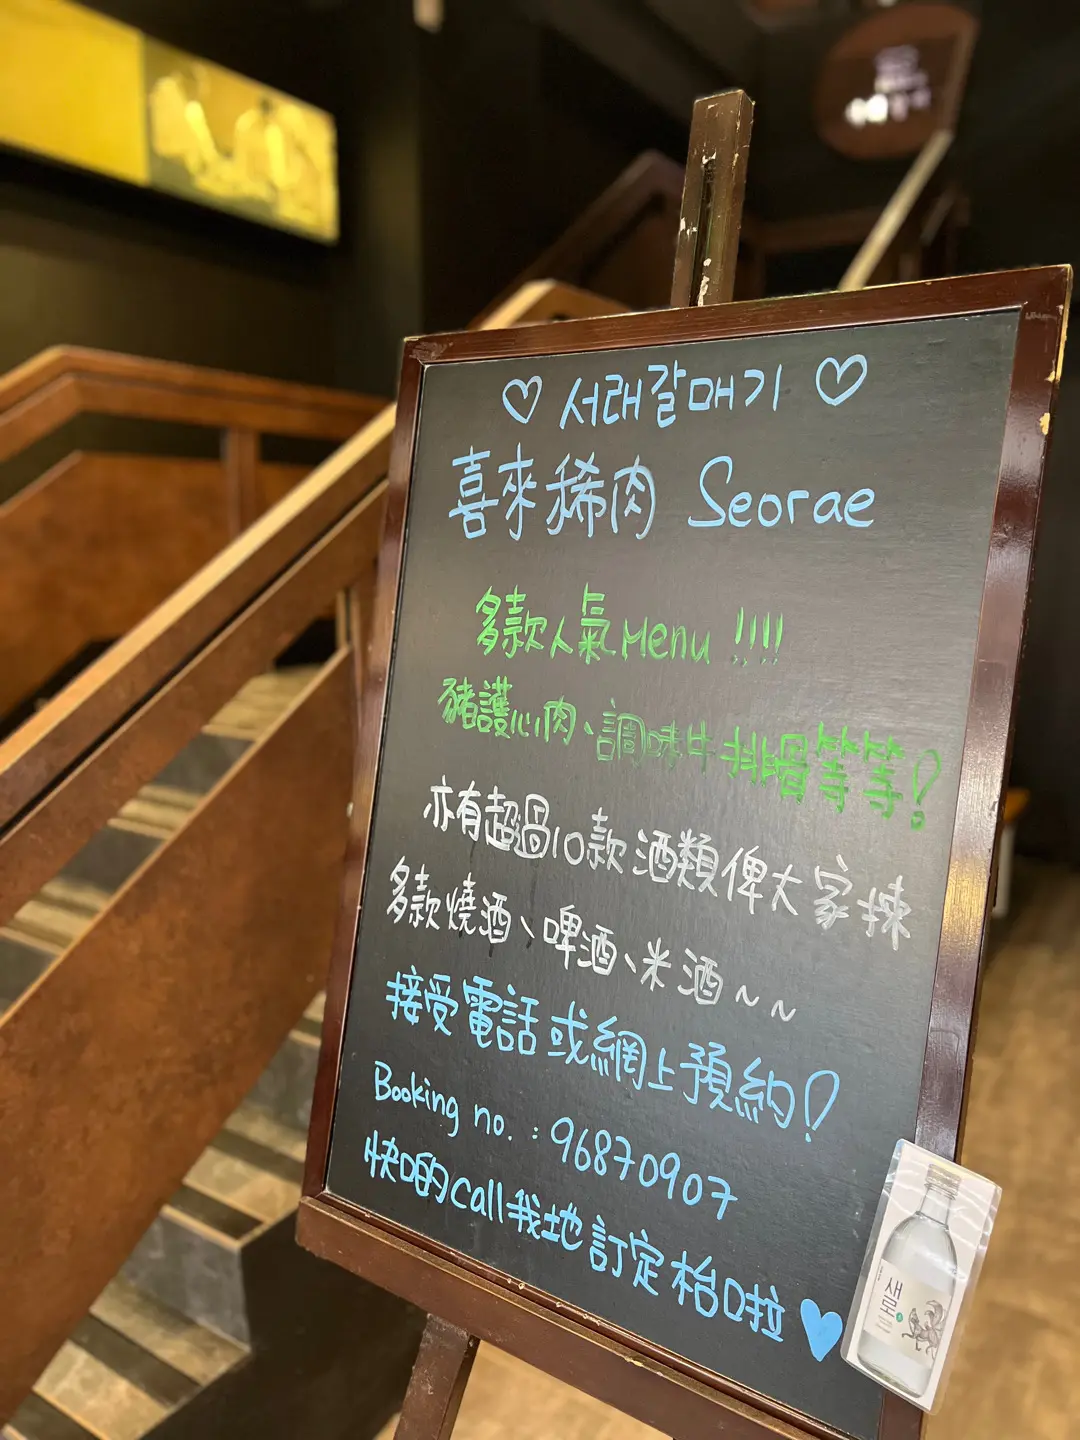 ♡ 서래갈매기 ♡
喜來稀肉 Seorae
多款人氣Menu !!!!
豬護心肉、調味牛排骨等等!
亦有超過10款酒類俾大家揀
多款燒酒、啤酒、米酒~~
接受電話或網上預約!
Booking no. : 96870907
快啲call我哋訂定枱啦♥
새로